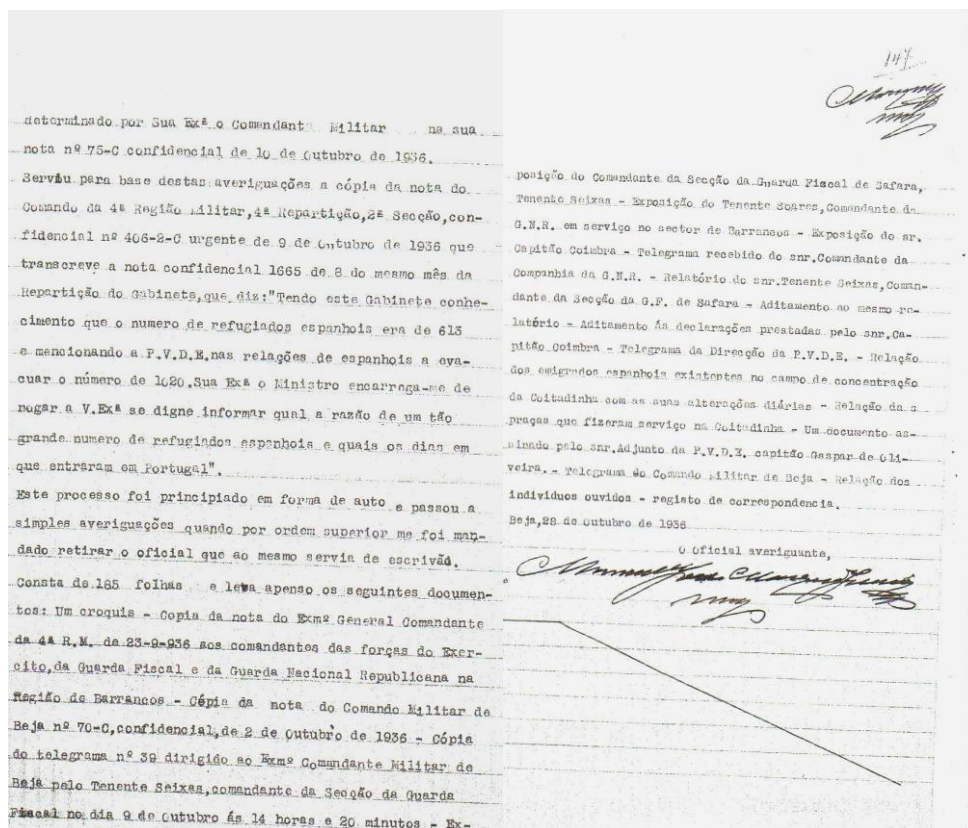 determinado por Sua Exª o Comandante Militar na sua
nota nº 75-C confidencial de 10 de Outubro de 1936.
Serviu para base destas averiguações a cópia da nota do
Comando da 4ª Região Militar,4ª Repartição,2ª Secção,con-
fidencial nº 406-2-C urgente de 9 de Outubro de 1936 que
transcreve a nota confidencial 1665 de 8 do mesmo mês da
Repartição do Gabinete,que diz:"Tendo este Gabinete conhe-
cimento que o numero de refugiados espanhois era de 613
e mencionando a P.V.D.E.nas relações de espanhois a eva-
cuar o número de 1020.Sua Exª o Ministro encarrega-me de
rogar a V.Exª se digne informar qual a razão de um tão
grande numero de refugiados espanhois e quais os dias em
que entraram em Portugal".
Este processo foi principiado em forma de auto e passou a
simples averiguações quando por ordem superior me foi man-
dado retirar o oficial que ao mesmo servia de escrivão.
Consta de 185 folhas e leva apenso os seguintes documen-
tos: Um croquis - Copia da nota do Exmº General Comandante
da 4ª R.M. de 23-9-936 aos comandantes das forças do Exer-
cito,da Guarda Fiscal e da Guarda Nacional Republicana na
Região de Barrancos - Cópia da nota do Comando Militar de
Beja nº 70-C,confidencial,de 2 de Outubro de 1936 - Cópia
do telegrama nº 39 dirigido ao Exmº Comandante Militar de
Beja pelo Tenente Seixas,comandante da Secção da Guarda
Fiscal no dia 9 de Outubro ás 14 horas e 20 minutos - Ex-
147
posição do Comandante da Secção da Guarda Fiscal de Safara,
Tenente Seixas - Exposição do Tenente Soares,Comandante da
G.N.R. em serviço no sector de Barrancos - Exposição do sr.
Capitão Coimbra - Telegrama recebido do snr.Comandante da
Companhia da G.N.R. - Relatório do snr.Tenente Seixas,Coman-
dante da Secção da G.F. de Safara - Aditamento ao mesmo re-
latório - Aditamento ás declarações prestadas pelo snr.Ca-
pitão Coimbra - Telegrama da Direcção da P.V.D.E. - Relação
dos emigrados espanhois existentes no campo de concentração
da Coitadinha com as suas alterações diárias - Relação das
praças que fizeram serviço na Coitadinha - Um documento as-
sinado pelo snr.Adjunto da P.V.D.E. capitão Gaspar de Oli-
veira. - Telegrama do Comando Militar de Beja - Relação dos
individuos ouvidos - registo de correspondencia.
Beja,28 de Outubro de 1936
O Oficial averiguante,